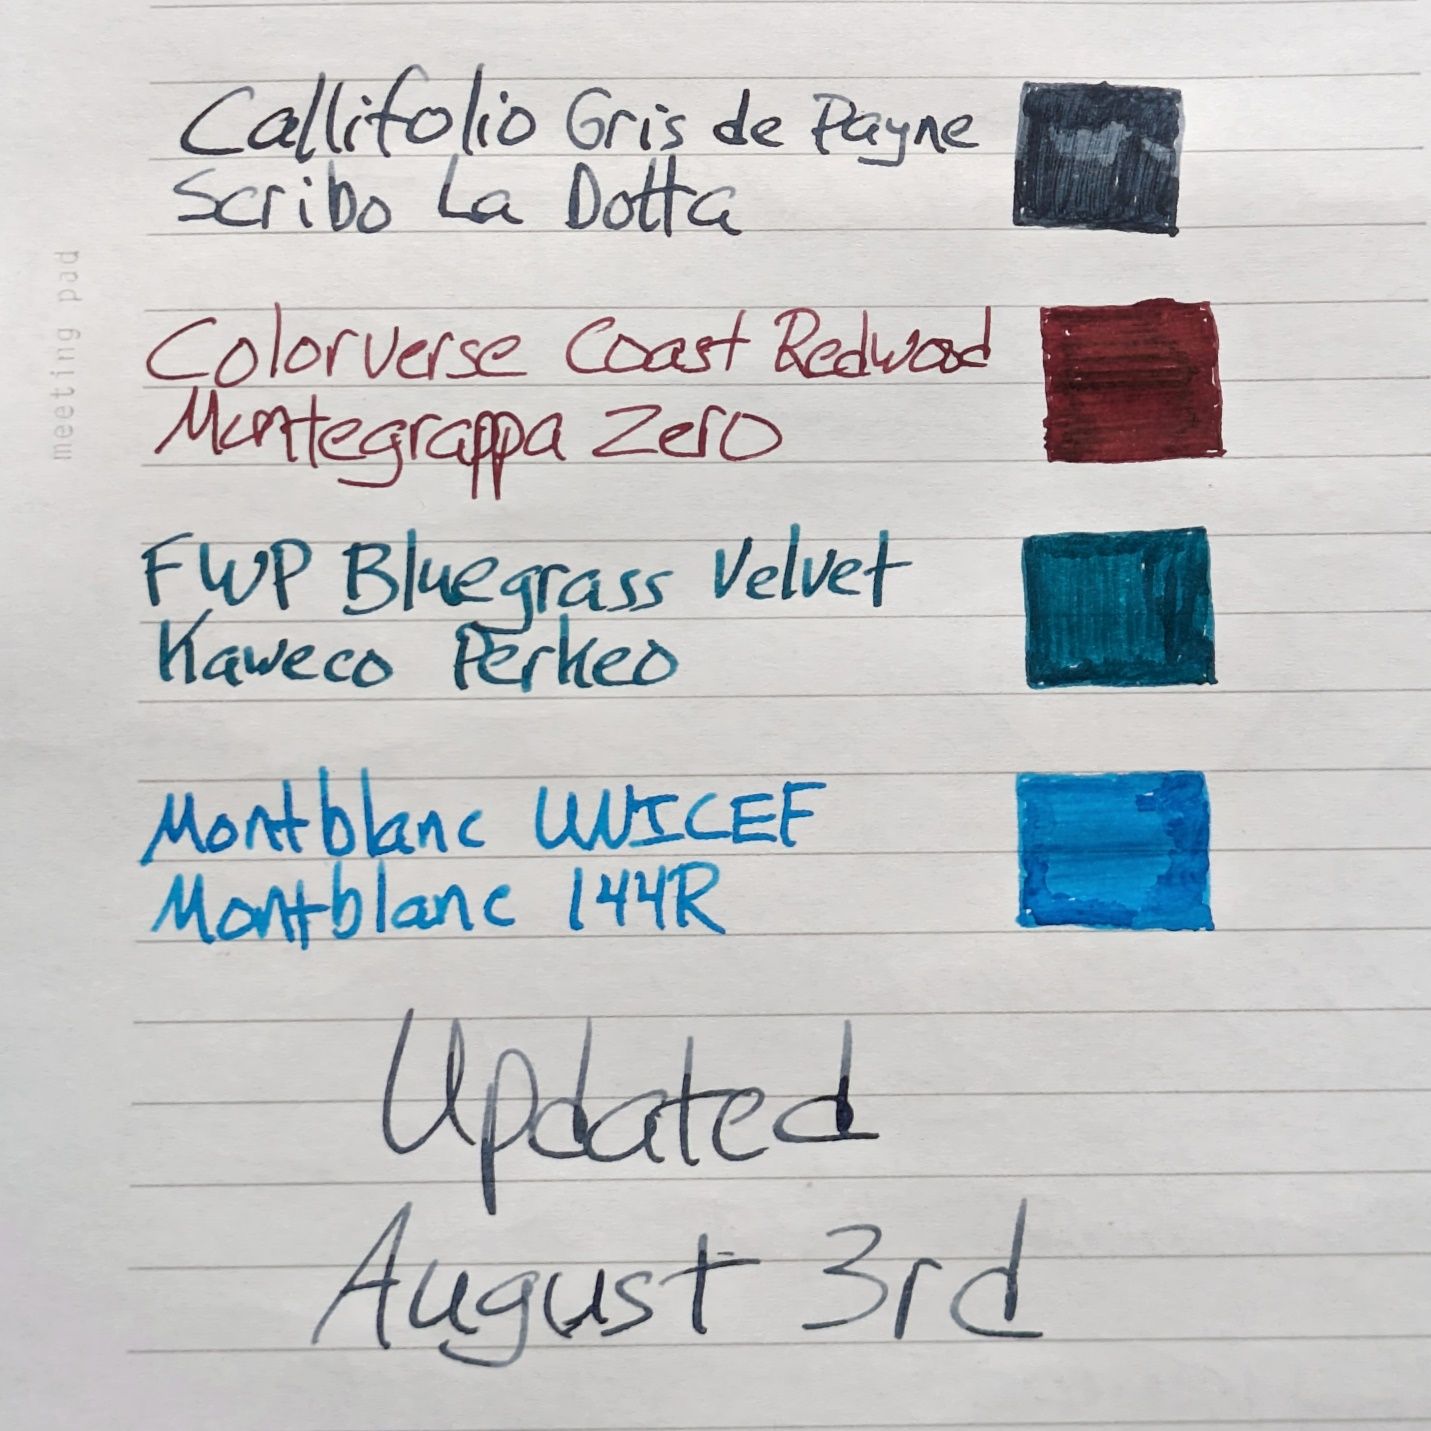 Callifolio Gris de Payne
Scribo La Dotta
Colorverse Coast Redwood
Montegrappa Zero
FWP Bluegrass Velvet
Kaweco Perkeo
Montblanc UNICEF
Montblanc 144R
Updated
August 3rd
meeting pad